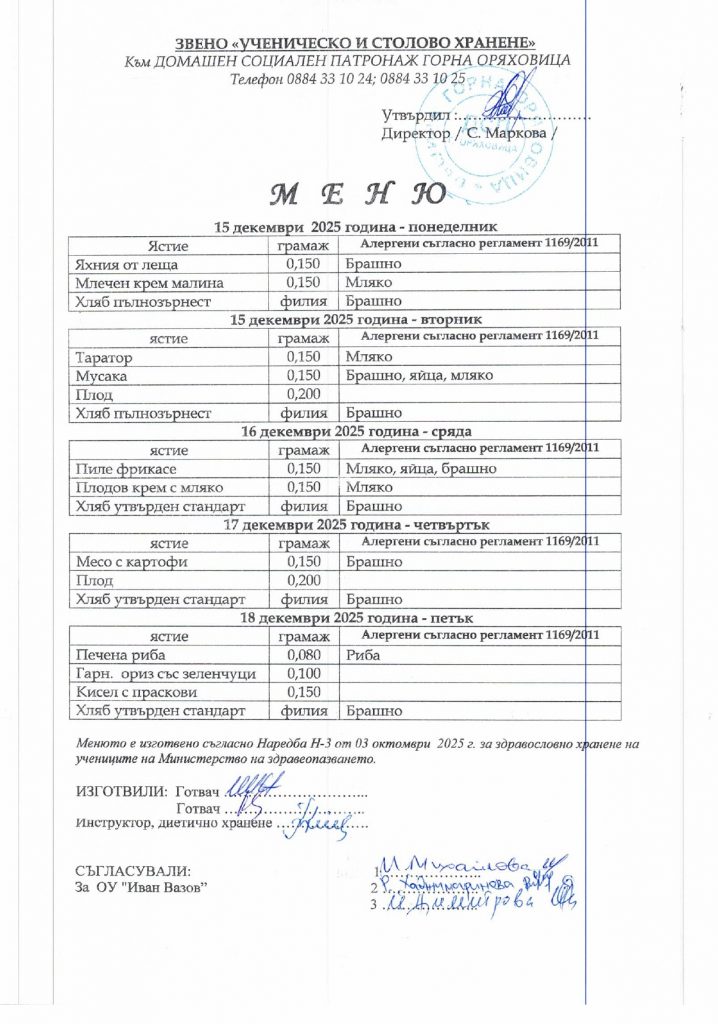 ЗВЕНО «УЧЕНИЧЕСКО И СТОЛОВО ХРАНЕНЕ»
Към ДОМАШЕН СОЦИАЛЕН ПАТРОНАЖ ГОРНА ОРЯХОВИЦА
Телефон 0884 33 10 24; 0884 33 10 25
Утвърдил :..............................
Директор / С. Маркова /
М Е Н Ю
15 декември 2025 година - понеделник
Ястие грамаж Алергени съгласно регламент 1169/2011
Яхния от леща 0,150 Брашно
Млечен крем малина 0,150 Мляко
Хляб пълнозърнест филия Брашно
15 декември 2025 година - вторник
ястие грамаж Алергени съгласно регламент 1169/2011
Таратор 0,150 Мляко
Мусака 0,150 Брашно, яйца, мляко
Плод 0,200
Хляб пълнозърнест филия Брашно
16 декември 2025 година - сряда
ястие грамаж Алергени съгласно регламент 1169/2011
Пиле фрикасе 0,150 Мляко, яйца, брашно
Плодов крем с мляко 0,150 Мляко
Хляб утвърден стандарт филия Брашно
17 декември 2025 година - четвъртък
ястие грамаж Алергени съгласно регламент 1169/2011
Месо с картофи 0,150 Брашно
Плод 0,200
Хляб утвърден стандарт филия Брашно
18 декември 2025 година - петък
ястие грамаж Алергени съгласно регламент 1169/2011
Печена риба 0,080 Риба
Гарн. ориз със зеленчуци 0,100
Кисел с праскови 0,150
Хляб утвърден стандарт филия Брашно
Менюто е изготвено съгласно Наредба Н-3 от 03 октомври 2025 г. за здравословно хранене на
учениците на Министерство на здравеопазването.
ИЗГОТВИЛИ: Готвач ..............................
Готвач ..............................
Инструктор, диетично хранене ....................
СЪГЛАСУВАЛИ:
За ОУ "Иван Вазов"
1 И Михайлова
2
3 Димитрова